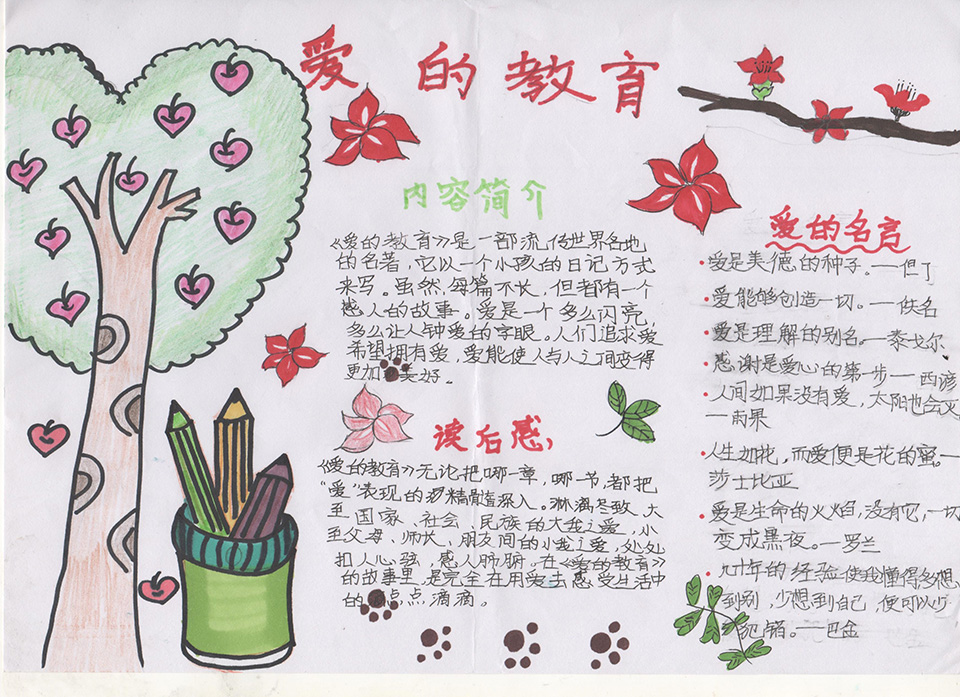 爱的教育
内容简介
《爱的教育》是一部流传世界各地
的名著，它以一个小孩的日记方式
来写。虽然，每篇不长，但都有一个
感人的故事。爱是一个多么闪亮，
多么让人钟爱的字眼。人们追求爱
希望拥有爱，爱能使人与人之间变得
更加美好。
读后感，
《爱的教育》无论把哪一章，哪一节，都把
“爱”表现的精髓深入。淋漓尽致、大
至国家、社会、民族的大我之爱，小
至父母、师长、朋友间的小我之爱，处处
扣人心弦，感人肺腑。在《爱的教育》
的故事里，是完全在用爱去感受生活中
的点点滴滴。
爱的名言
·爱是美德的种子。——但丁
·爱能够创造一切。——佚名
·爱是理解的别名。——泰戈尔
·感谢是爱心的第一步——西谚
·人间如果没有爱，太阳也会灭
——雨果
·人生如花，而爱便是花的蜜。——
莎士比亚
·爱是生命的火焰，没有它，一切
变成黑夜。——罗兰
·几十年的经验使我懂得多想
到别，少想到自己，便可以少
犯错。——巴金